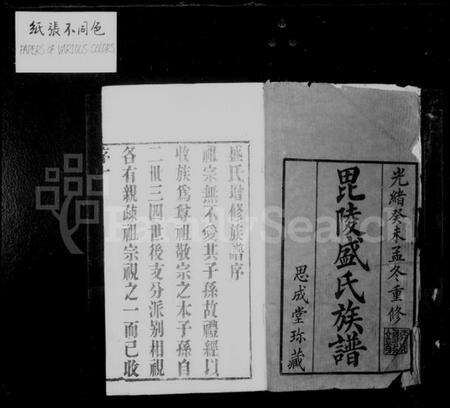 紙張不同色
PAPERS OF VARIOUS COLORS
光緒癸未孟冬重修
毘陵盛氏族譜
思成堂珍藏
盛氏增修族譜序
祖宗無不愛其子孫故禮經以
收族為尊祖敬宗之本子孫自
二世三四世後支分派別相視
各有親疎祖宗視之一而已收
FamilySearch